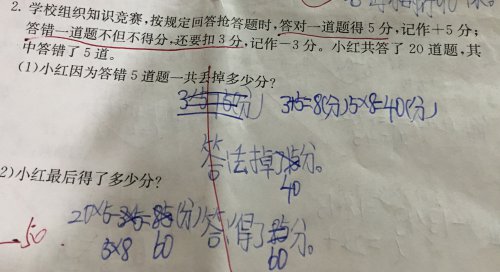 2. 学校组织知识竞赛,按规定回答抢答题时,答对一道题得5分,记作+5分;
答错一道题不但不得分,还要扣3分,记作-3分。小红共答了20道题,其
中答错了5道。
(1)小红因为答错5道题一共丢掉多少分?
3+5=8(分) 5×8=40(分)
答:丢掉了 分。
40
2)小红最后得了多少分?
20×5- = (分) 答:得了 分。
5×8 60
60
50